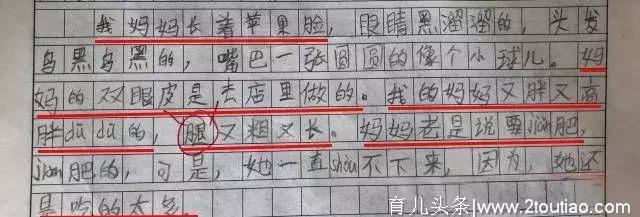 我妈妈长着苹果脸，眼睛黑溜溜的，头发
乌黑乌黑的，嘴巴一张圆圆的像个小球儿。妈
妈的双眼皮是去店里做的。我的妈妈又胖又高
胖dūdū的，腿又粗又长。妈妈老是说要jiǎn肥，
jiǎn肥的，可是，她一直shòu不下来，因为，她还
是吃的太多
育儿头条 www.2toutiao.com